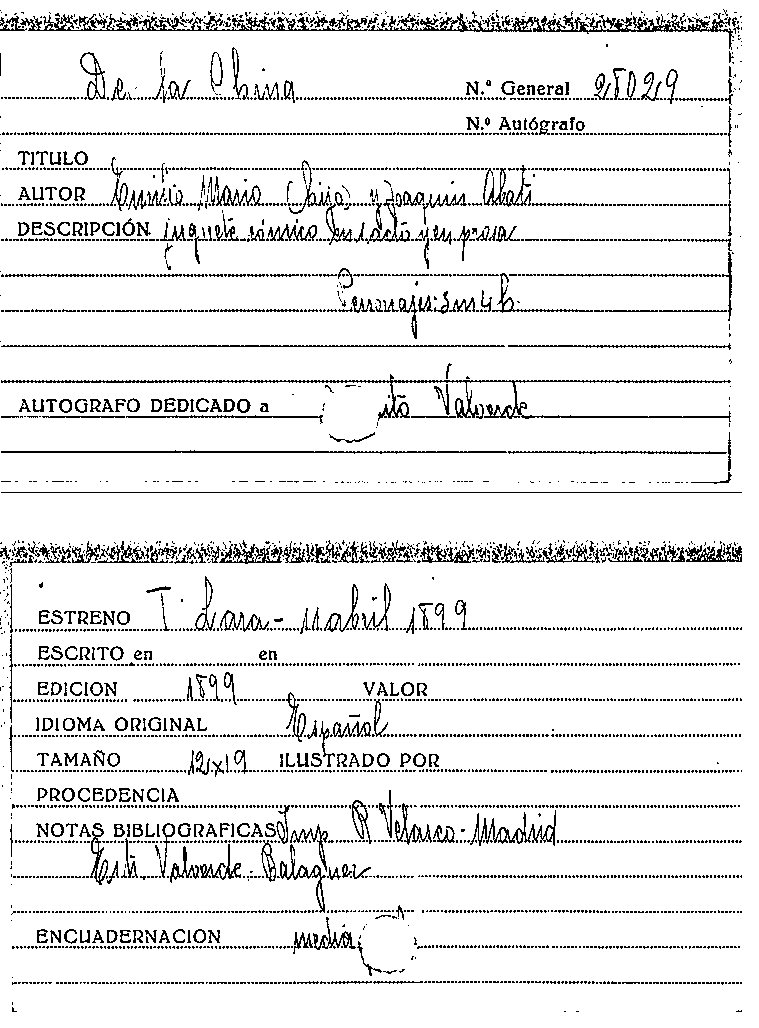 De la China
N.º General 28029
N.º Autógrafo
TITULO
AUTOR Emilio Mario (hijo) y Joaquin Abati
DESCRIPCIÓN juguete cómico en 1 acto y en prosa
Personajes: 3 m 4 h.
AUTOGRAFO DEDICADO a ito Valverde
ESTRENO T. Lara - 11 abril 1899
ESCRITO en en
EDICION 1899 VALOR
IDIOMA ORIGINAL Español
TAMAÑO 12x19 ILUSTRADO POR
PROCEDENCIA
NOTAS BIBLIOGRAFICAS Imp R Velasco - Madrid
Valverde - Balaguer
ENCUADERNACION media